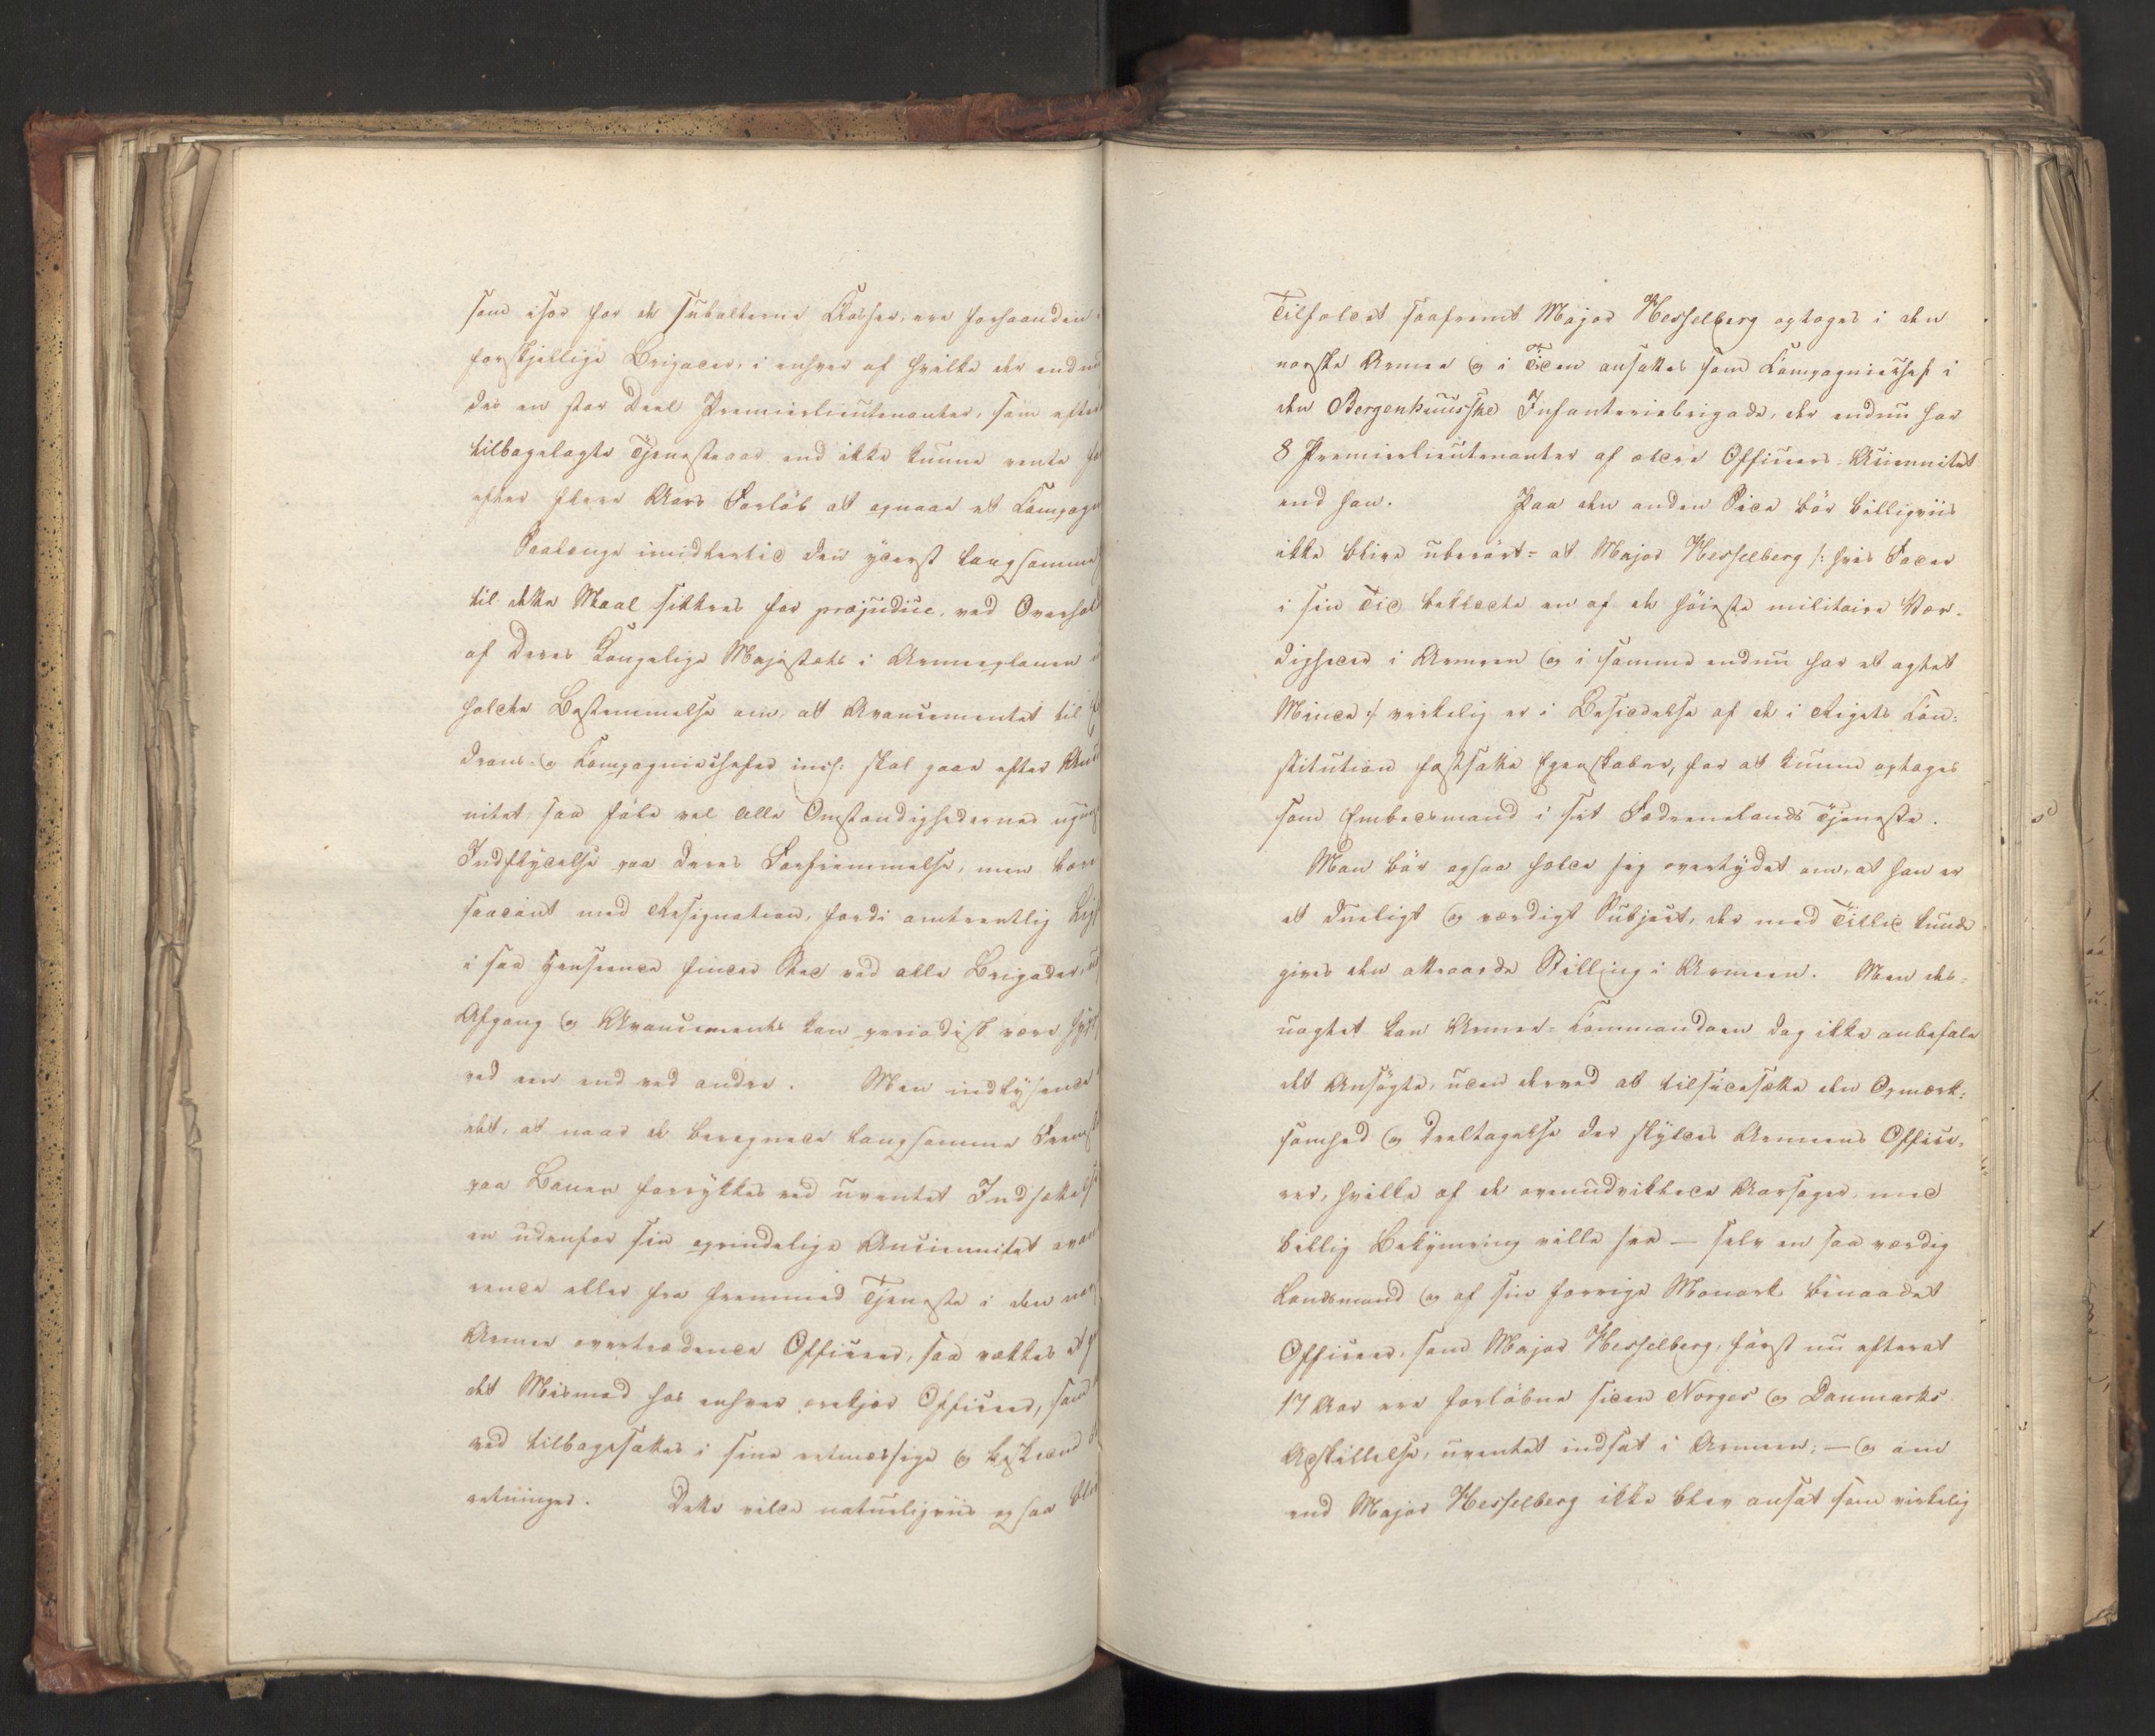 som især for de subalterne Klasser, ere forhaanden
forskjellige Brigader, i enhver af hvilke der endnu
des en stor Deel Premierlieutenanter, som efter
tilbagelagte Tjenesteaar end ikke kunne vente
efter flere Aars Forløb at opnaae et Compag
Saalænge imidlertid den yderst langsomme
til dette Maal sikkres for præjudice, ved Overhol
af Deres Kongelige Majestæts i Armeeplanen
holdte Bestemmelse om, at Avancementet til
drons- og Compagniechefer incl: skal gaae efter Anci
nitet, saa føle vel alle Omstændighedernes ugun
Indflydelse paa deres Forfremmelse, men bære
saadant med Resignation, fordi omtrentlig Lig
i saa Henseende finder Sted ved alle Brigader,
Afgang og Avancements kan periodisk være hyp
ved een end ved andre. Men indlysende
det, at naar de beregnede langsomme Frem
paa Banen forrykkes ved uventet Indsættelse
en udenfor sin oprindelige Anciennitet avan
rende eller fra fremmed Tjeneste i den nor
Armee overtrædende Officeer, saa vækkes
det Mismod hos enhver ærekjær Officeer, som
ved tilbagesættes i sine retmæssige og beskedne
retninger. Dette vilde naturligviis ogsaa bli
Tilfældet saafremt Major Hesselberg optoges i den
norske Armee og i Tiden ansættes som Compagniechef i
den Bergenhuusske Infanteriebrigade, der endnu har
8 Premierlieutenanter af ældre Officeers-Anciennitet
end han. Paa den anden Side bør billigviis
ikke blive uberørt at Major Hesselberg /: hvis Fader
i sin Tid beklædte en af de høieste militaire Vær-
digheder i Armeen og i samme endnu har et agtet
Minde :/ virkelig er i Besiddelse af de i Rigets Con-
stitution fastsatte Egenskaber, for at kunne optages
som Embedsmand i sit Fædrenelands Tjeneste.
Man bør ogsaa holde sig overtydet om, at han er
et dueligt og værdigt Subject, der med Tillid kunde
gives den attraaede Stilling i Armeen. Men des-
uagtet kan Armee-Commandoen dog ikke anbefale
det Ansøgte, uden derved at tilsidesætte den Opmærk-
somhed og Deeltagelse der skyldes Armeens Office-
rer, hvilke af de ovenudviklede Aarsager, med
billig Bekymring ville see — selv en saa værdig
Landsmand og af sin forrige Monark benaadet
Officeer, som Major Hesselberg, først nu efterat
17 Aar ere forløbne siden Norges og Danmarks
Adskillelse, uventet indsat i Armeen; — og om
end Major Hesselberg ikke blev ansat som virkelig